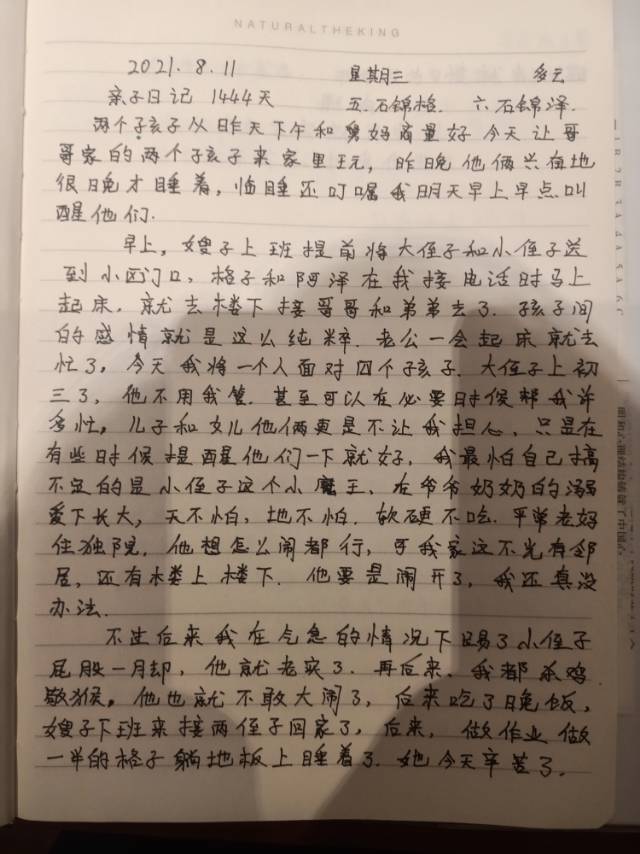 NATURALTHEKING
2021.8.11 星期三 多云
亲子日记 1444天 五.石锦格. 六.石锦泽.
两个孩子从昨天下午和舅妈商量好今天让哥
哥家的两个孩子来家里玩，昨晚他俩兴奋地
很晚才睡着，临睡还叮嘱我明天早上早点叫
醒他们.
早上，嫂子上班提前将大侄子和小侄子送
到小区门口，格子和阿泽在我接电话时马上
起床，就去楼下接哥哥和弟弟去了.孩子间
的感情就是这么纯粹.老公一会起床就去
忙了，今天我将一个人面对四个孩子.大侄子上初
三了，他不用我管.甚至可以在必要时候帮我许
多忙，儿子和女儿他俩更是不让我担心，只是在
有些时候提醒他们一下就好，我最怕自己搞
不定的是小侄子这个小魔王，在爷爷奶奶的溺
爱下长大，天不怕，地不怕.软硬不吃.平常老妈
住独院，他想怎么闹都行，可我家这不光有邻
居，还有木楼上楼下.他要是闹开了，我还真没
办法.
不过后来我在气急的情况下踢了小侄子
屁股一月却，他就老实了.再后来，我都杀鸡
敬猴，他也就不敢大闹了，后来吃了晚饭，
嫂子下班来接两侄子回家了，后来，做作业做
一半的格子躺地板上睡着了.她今天辛苦了.